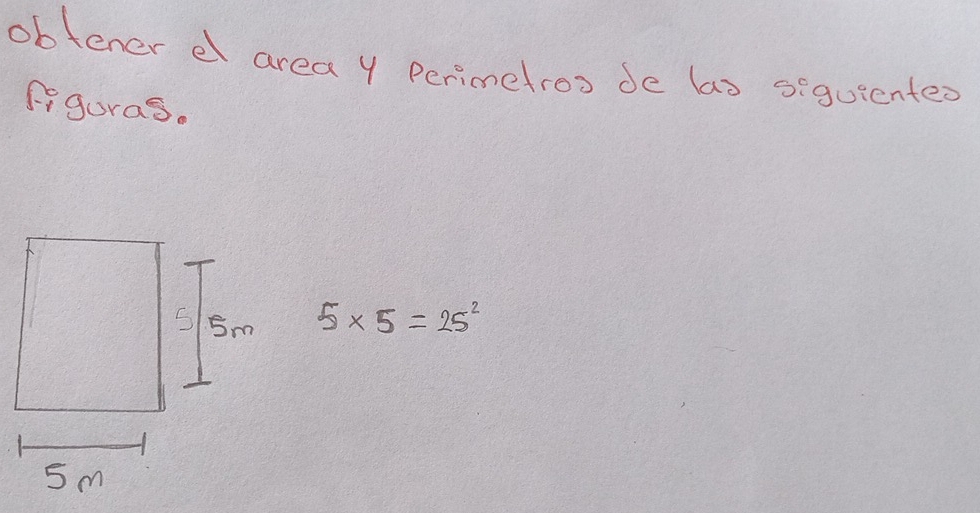 obtener el area y perimetros de las siguientes
figuras.
5 5m 5 × 5 = 25²
5m